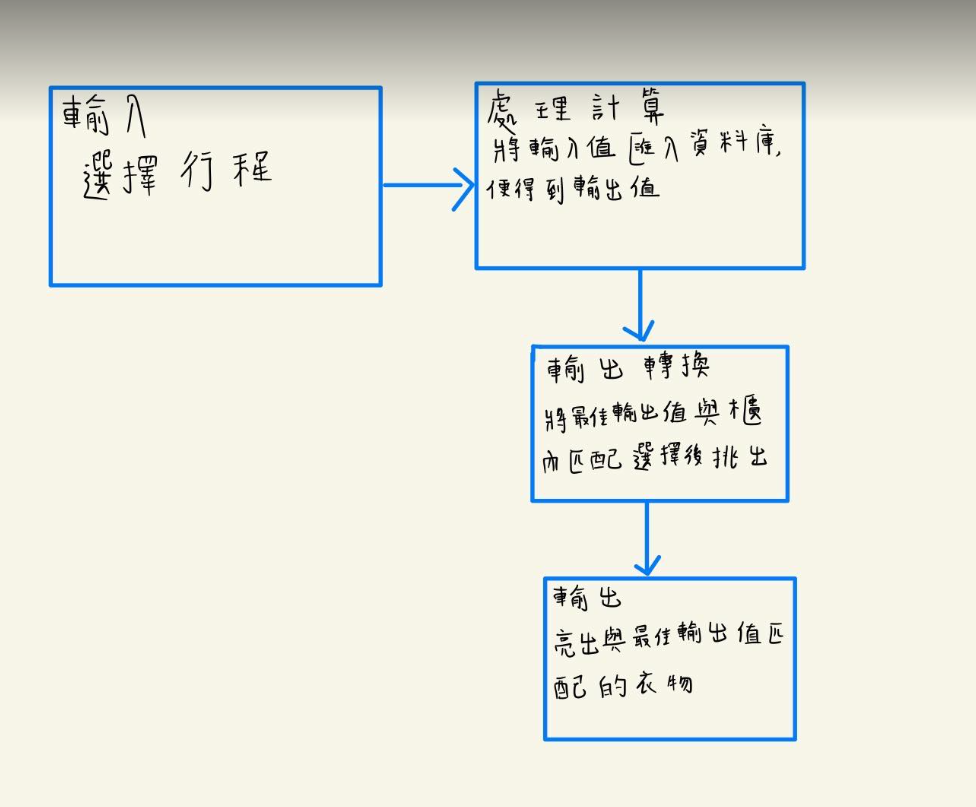 輸入
選擇行程
處理計算
將輸入值匯入資料庫,
便得到輸出值
輸出轉換
將最佳輸出值與櫃
內匹配選擇後挑出
輸出
亮出與最佳輸出值匹
配的衣物